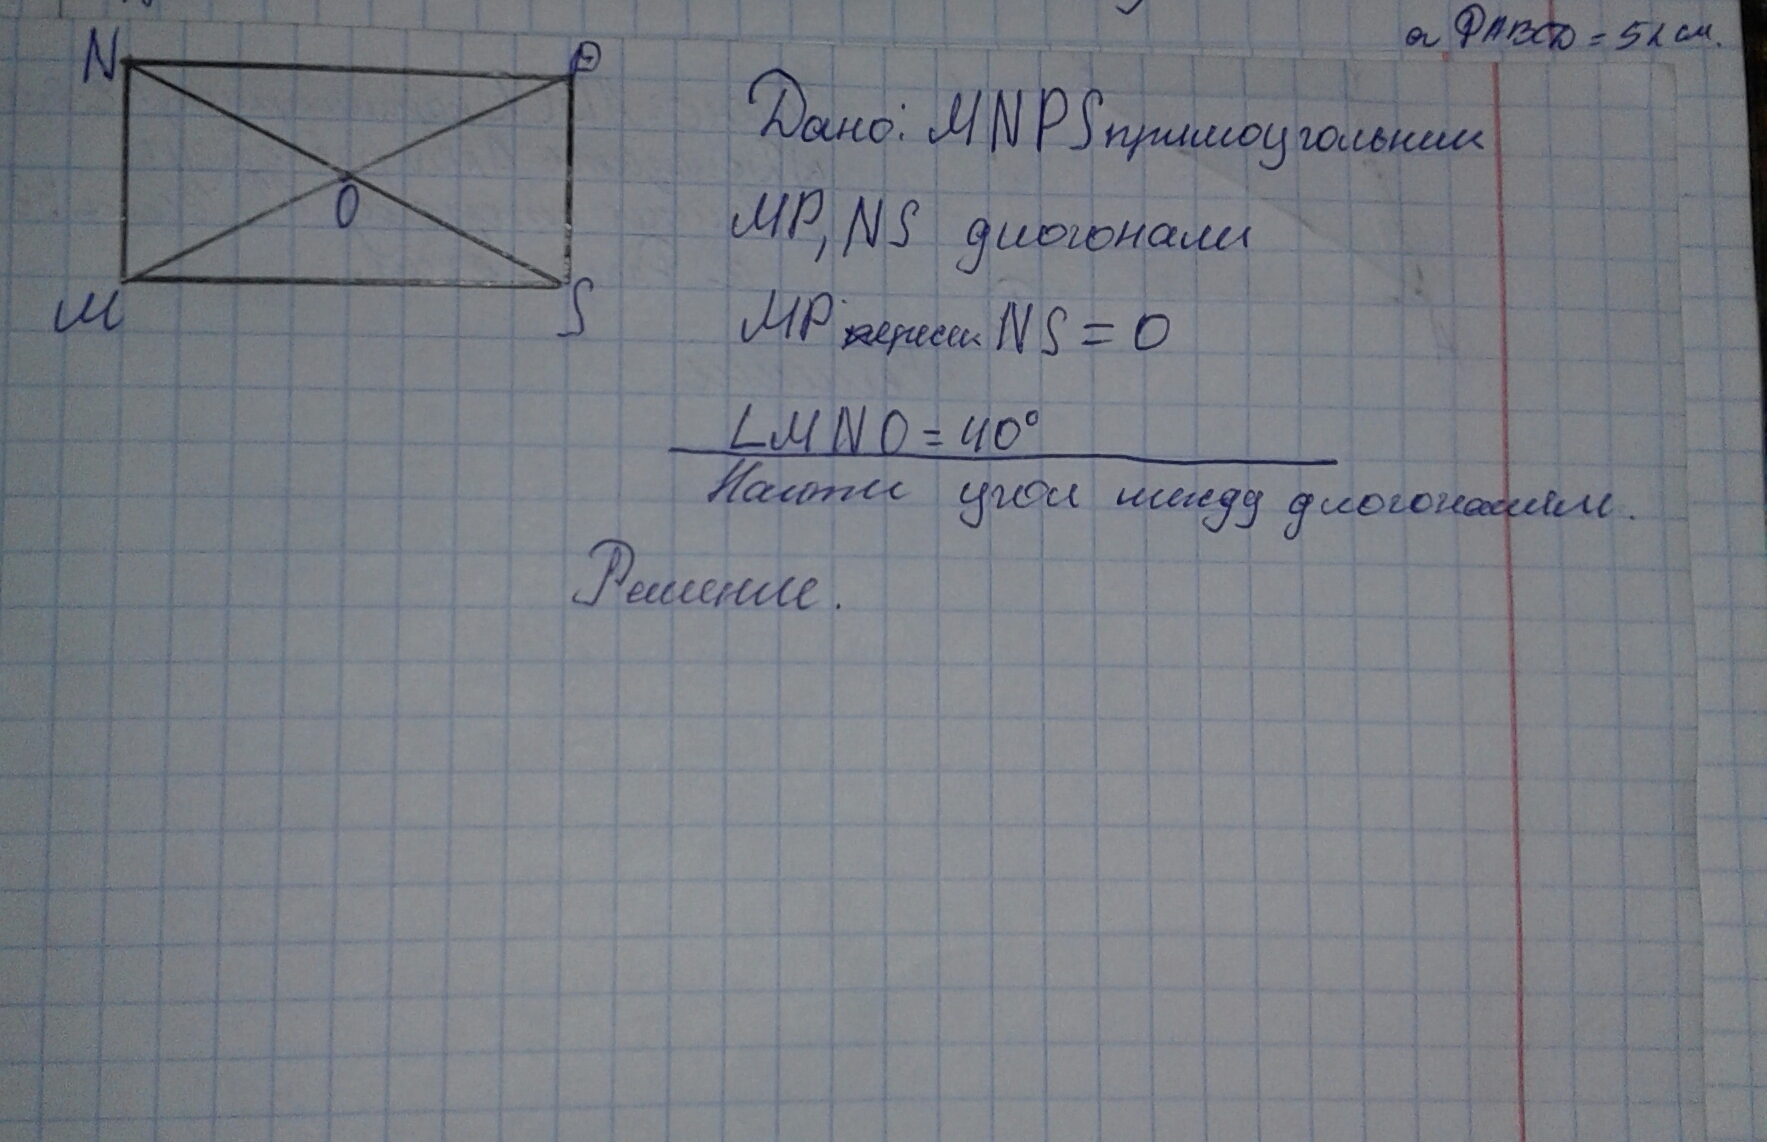 PABCD = 52 см.
N
P
O
M
S
Дано: MNPS прямоугольник
MP, NS диогонали
MP пересек NS = O
∠MNO = 40°
Найти угол между диогоналями.
Решение.